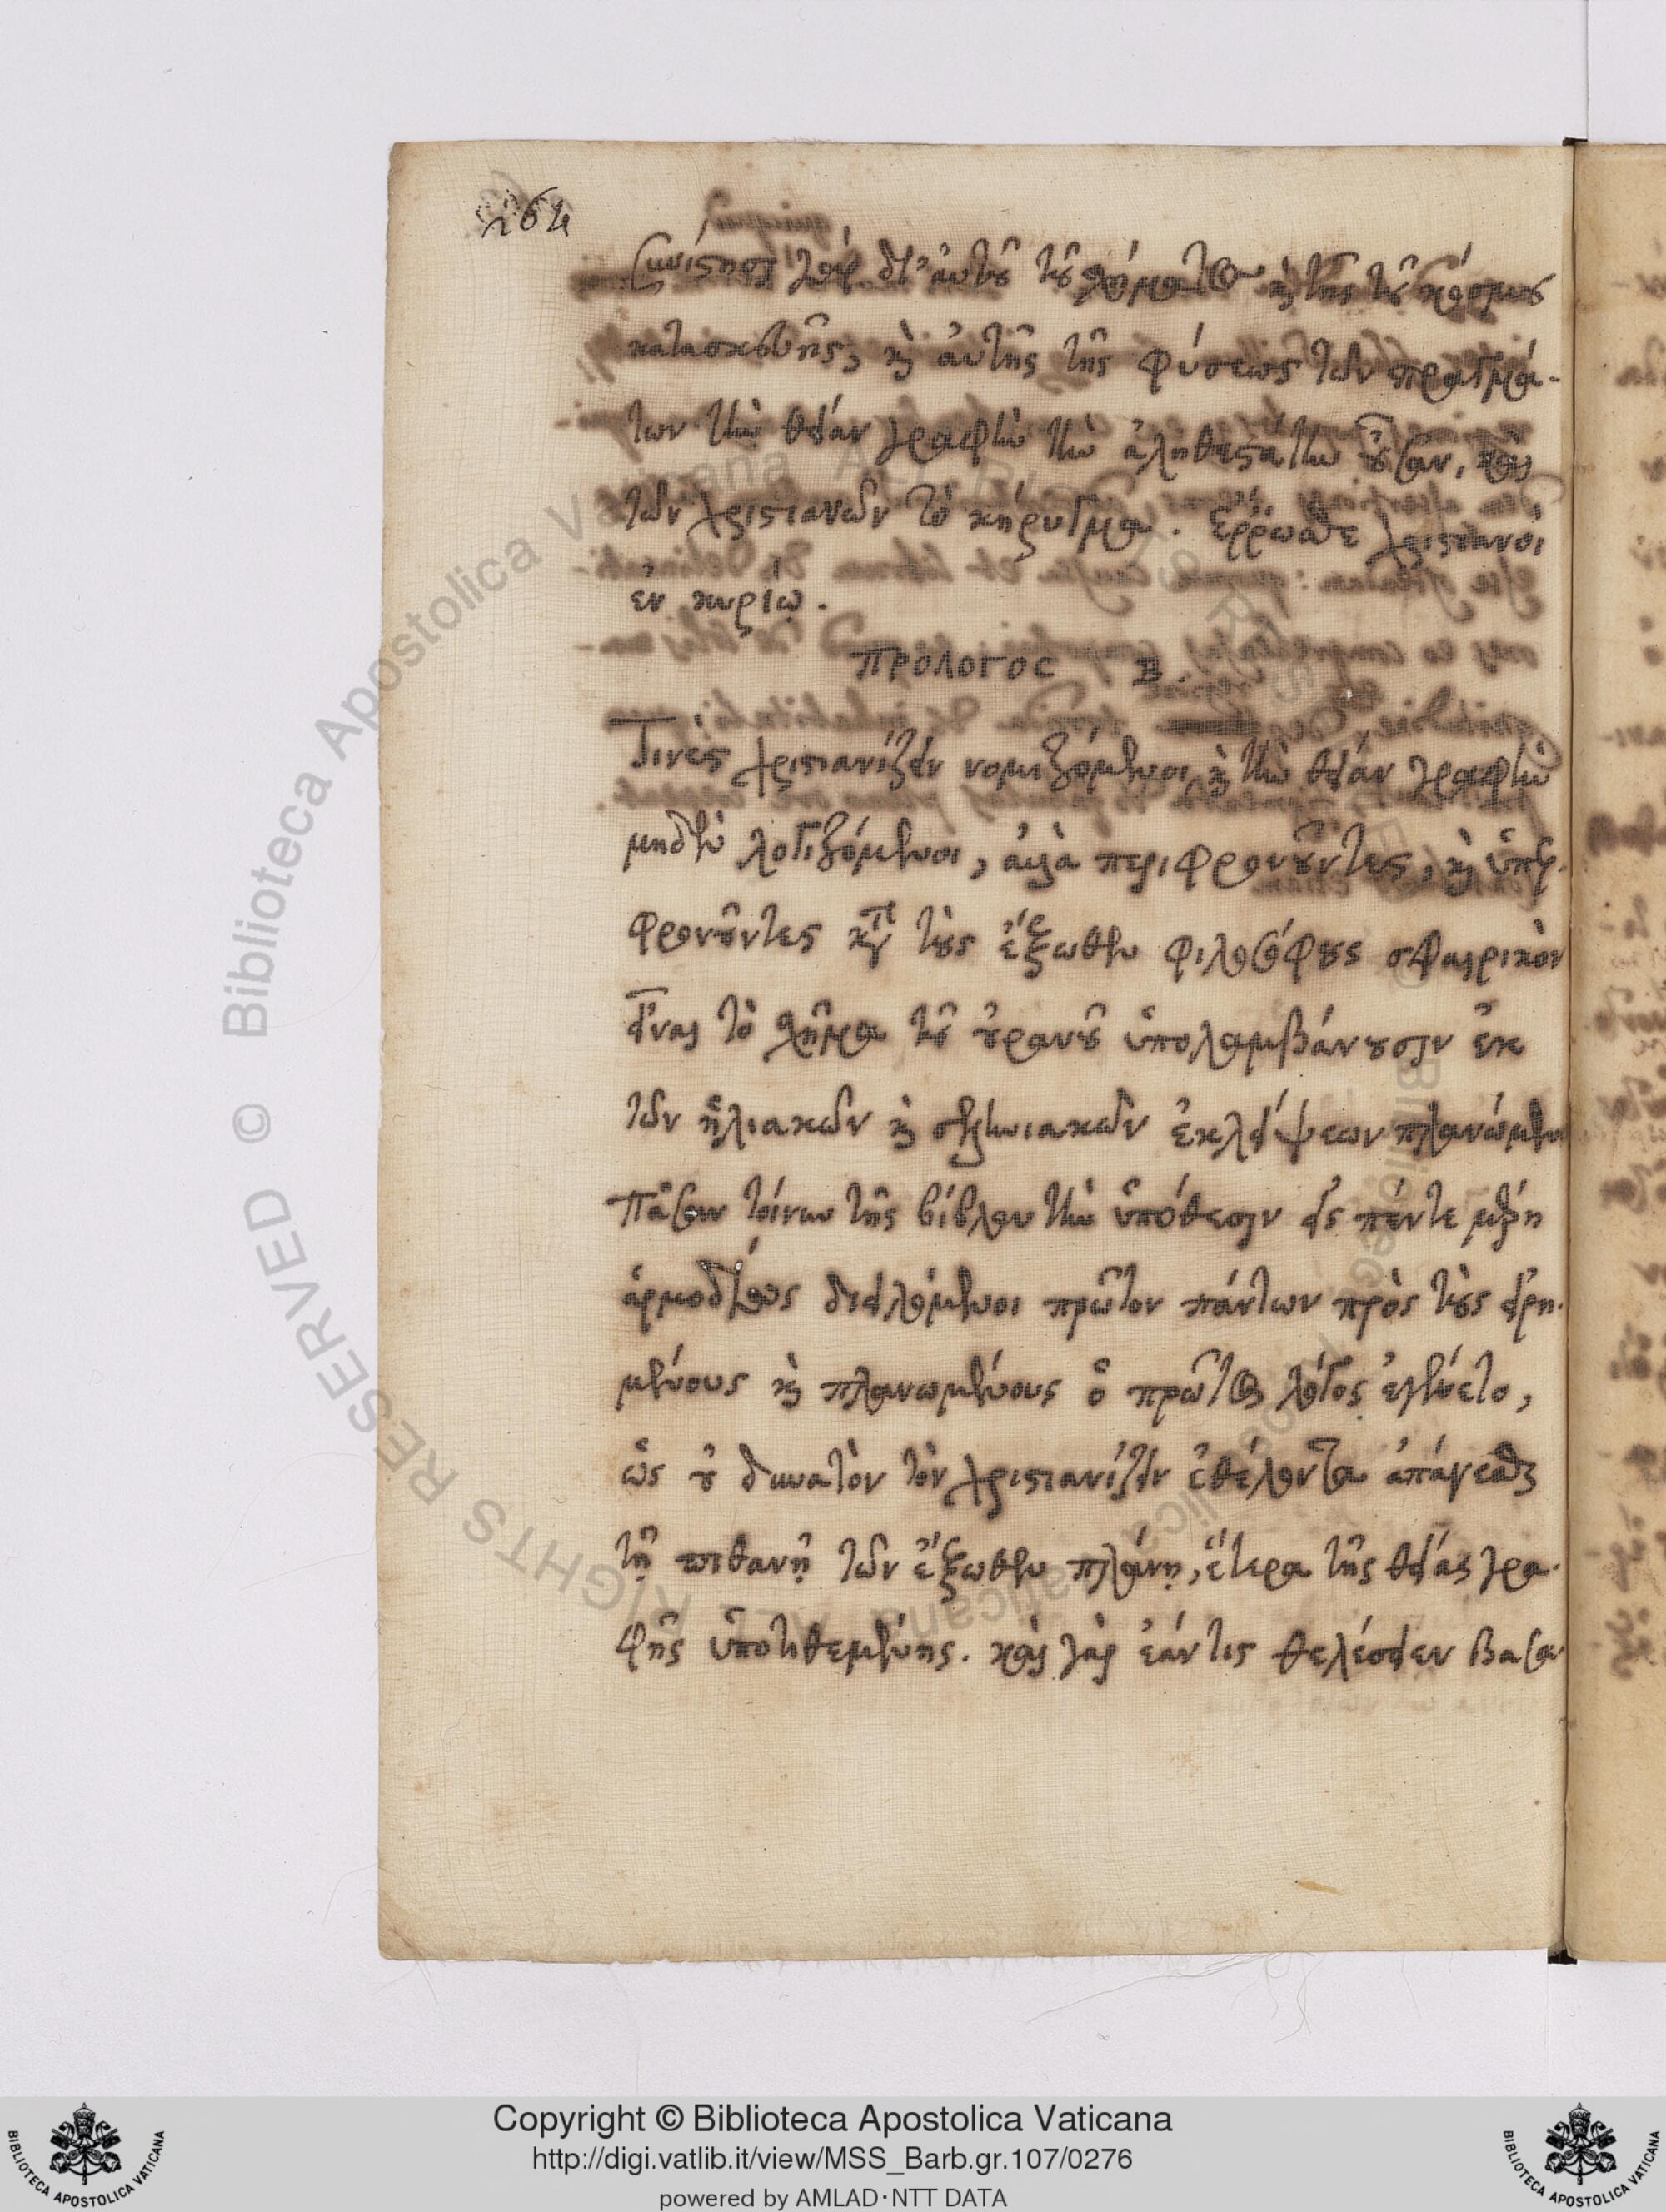 264
Συνίστησι γὰρ δι' αὐτοῦ τοῦ σχήματος καὶ τῆς τοῦ κόσμου
κατασκευῆς, καὶ αὐτῆς τῆς φύσεως τῶν πραγμά-
των τὴν θείαν γραφὴν τὴν ἀληθεστάτην οὖσαν, καὶ
τῶν χριστιανῶν τὸ κήρυγμα. ἔρρωσθε χριστιανοὶ
ἐν κυρίῳ.
ΠΡΟΛΟΓΟΣ Β.
Τινὲς χριστιανίζειν νομιζόμενοι καὶ τὴν θείαν γραφὴν
μηδὲν λογιζόμενοι, ἀλλὰ περιφρονοῦντες, καὶ ὑπερ-
φρονοῦντες κατὰ τοὺς ἔξωθεν φιλοσόφους σφαιρικὸν
εἶναι τὸ σχῆμα τοῦ οὐρανοῦ ὑπολαμβάνουσιν ἐκ
τῶν ἡλιακῶν καὶ σεληνιακῶν ἐκλείψεων πλανώμενοι
Πᾶσαν τοίνυν τῆς βίβλου τὴν ὑπόθεσιν εἰς πέντε μέρη
ἁρμοδίως διειλόμενοι πρῶτον πάντων πρὸς τοὺς εἰρη-
μένους καὶ πλανωμένους ὁ πρῶτος λόγος ἐγένετο,
ὡς οὐ δυνατὸν τὸν χριστιανίζειν ἐθέλοντα ἀπάγεσθαι
τῇ πιθανῇ τῶν ἔξωθεν πλάνῃ, ἕτερα τῆς θείας γρα-
φῆς ὑποτιθεμένης. καὶ γὰρ ἐάν τις θελέσειεν βασα-
Copyright © Biblioteca Apostolica Vaticana
http://digi.vatlib.it/view/MSS_Barb.gr.107/0276
powered by AMLAD·NTT DATA